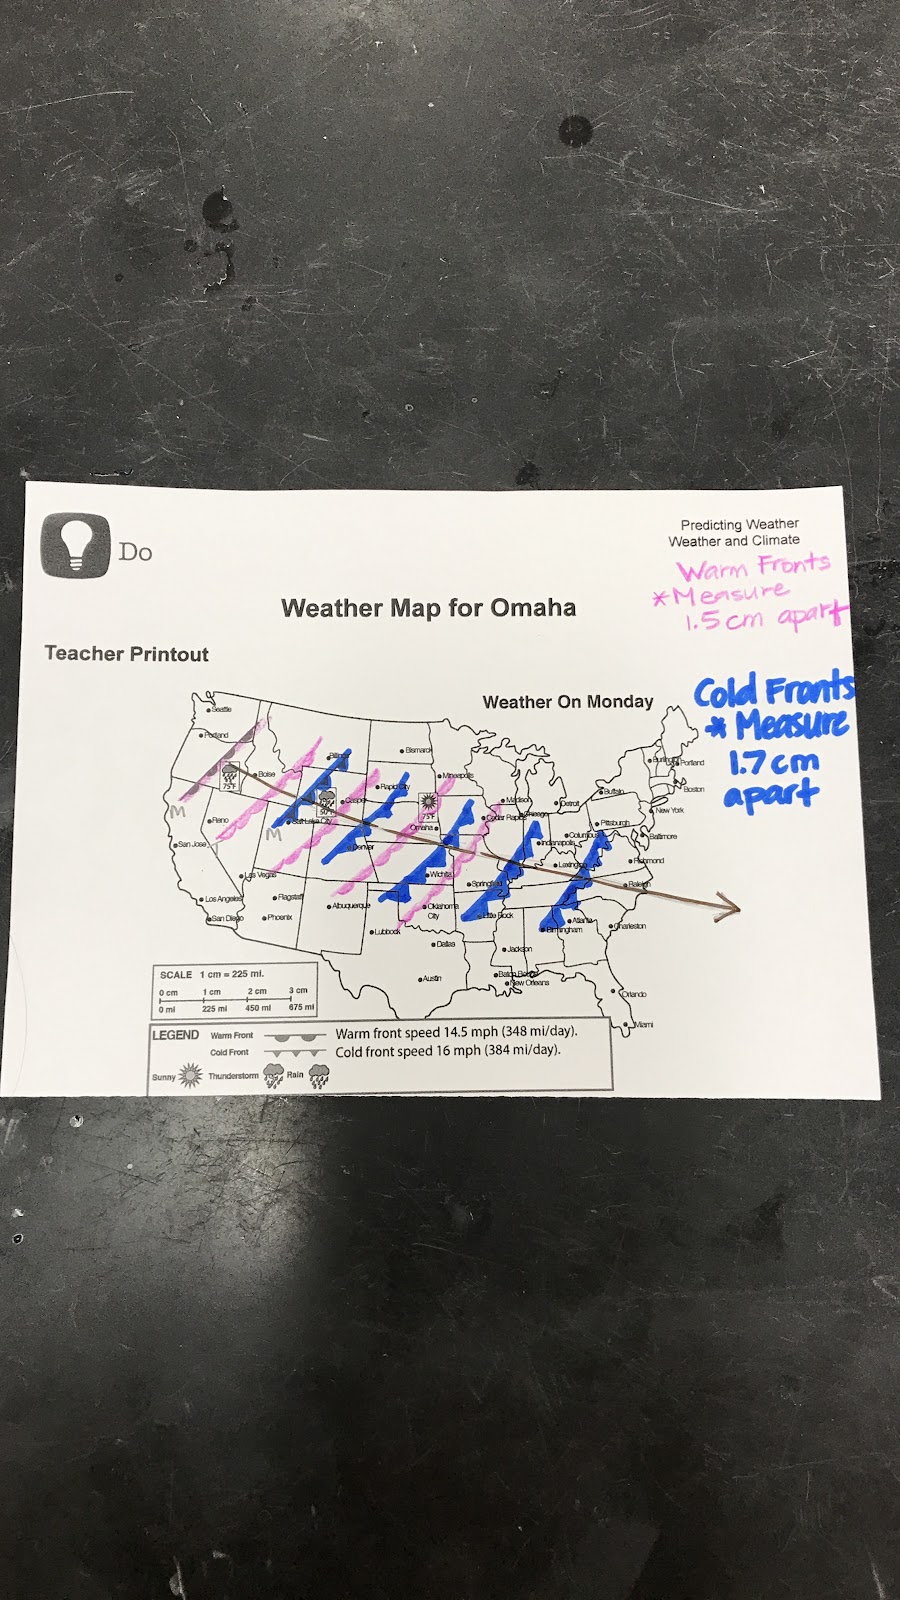 Do
Predicting Weather
Weather and Climate
Warm Fronts
*Measure
1.5cm apart
Weather Map for Omaha
Teacher Printout
Weather On Monday
Cold Fronts
* Measure
1.7cm
apart
Seattle
Portland
Boise
75°F
M
Reno
San Jose
M
Salt Lake City
Billings
50°F
Casper
Rapid City
Bismarck
Minneapolis
75°F
Omaha
Denver
Las Vegas
Los Angeles
San Diego
Flagstaff
Phoenix
Albuquerque
Lubbock
Wichita
Oklahoma
City
Dallas
Austin
Madison
Chicago
Cedar Rapids
Detroit
Buffalo
Burlington
Portland
Boston
New York
Pittsburgh
Baltimore
Columbus
Indianapolis
Lexington
Richmond
Raleigh
Springfield
Little Rock
Atlanta
Birmingham
Charleston
Jackson
Baton Rouge
New Orleans
Orlando
Miami
SCALE 1 cm = 225 mi.
0 cm 1 cm 2 cm 3 cm
0 mi 225 mi 450 mi 675 mi
LEGEND Warm Front Warm front speed 14.5 mph (348 mi/day).
Cold Front Cold front speed 16 mph (384 mi/day).
Sunny Thunderstorm Rain